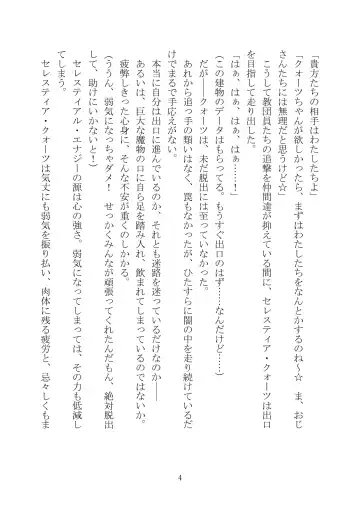 「貴方たちの相手はわたしたちよ」
「クォーツちゃんが欲しかったら、まずはわたしたちをなんとかするのね～☆　ま、おじ
さんたちには無理だと思うけど☆」
こうして教団員たちの追撃を仲間達が抑えている間に、セレスティア・クォーツは出口
を目指して走り出した。
「はぁ、はぁ、はぁ、はぁ……！」
（この建物のデータはもらってる。もうすぐ出口のはず……なんだけど……）
だが――クォーツは、未だ脱出には至っていなかった。
あれから追っ手の類いはなく、罠もなかったが、ひたすらに闇の中を走り続けているだ
けでまるで手応えがない。
本当に自分は出口に進んでいるのか、それとも迷路を迷っているだけなのか――
あるいは、巨大な魔物の口に自ら足を踏み入れ、飲まれてしまっているのではないか。
疲弊しきった心身に、そんな不安が重くのしかかる。
（ううん、弱気になっちゃダメ！　せっかくみんなが頑張ってくれたんだもん、絶対脱出
して、助けにいかないと！）
セレスティアル・エナジーの源は心の強さ。弱気になってしまっては、その力も低減し
てしまう。
セレスティア・クォーツは気丈にも弱気を振り払い、肉体に残る疲労と、忌々しくもま
4